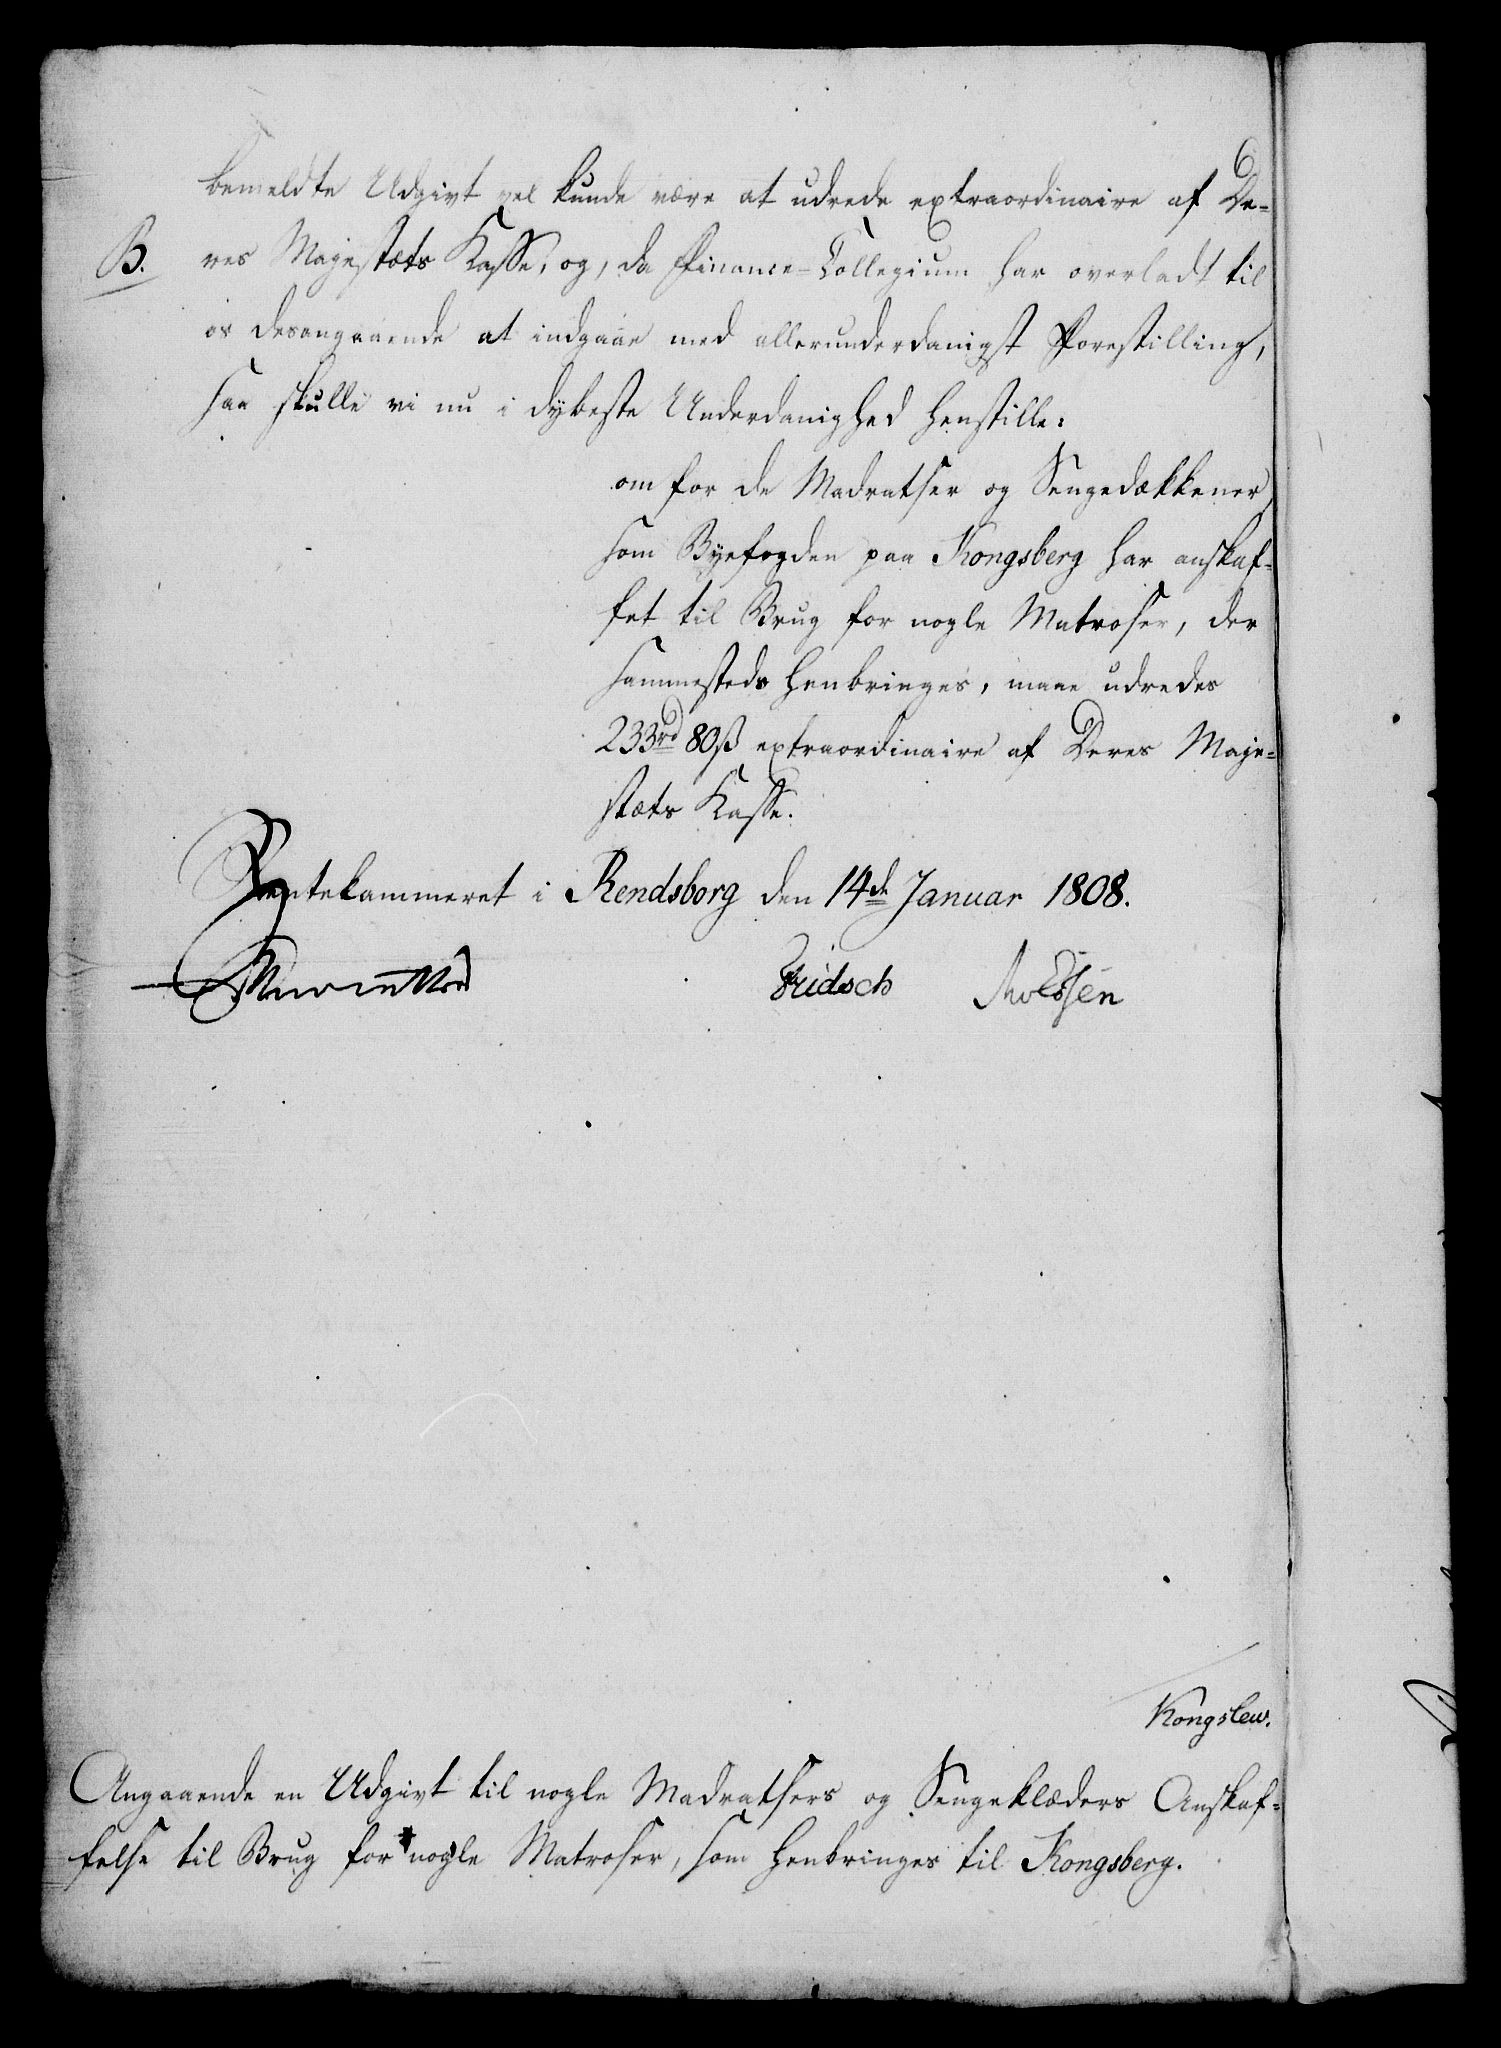 bemeldte Udgivt vel kunde være at udrede extraordinaire af De-
B.
res Majestæts Kasse, og, da Finance-Collegium har overladt til
os desangaaende at indgaae med allerunderdanigst Forestilling,
saa skulle vi nu i dybeste Underdanighed henstille:
om for de Madratser og Sengedækkener,
som Byefogden paa Kongsberg har anskaf-
fet til Brug for nogle Matroser, der
sammesteds henbringes, maae udredes
233rd 80ß extraordinaire af Deres Maje-
stæts Kasse.
Rentekammeret i Rendsborg den 14de Januar 1808.
Fridsch
Kongslew.
Angaaende en Udgivt til nogle Madratsers og Sengeklæders Anskaf-
felse til Brug for nogle Matroser, som henbringes til Kongsberg.